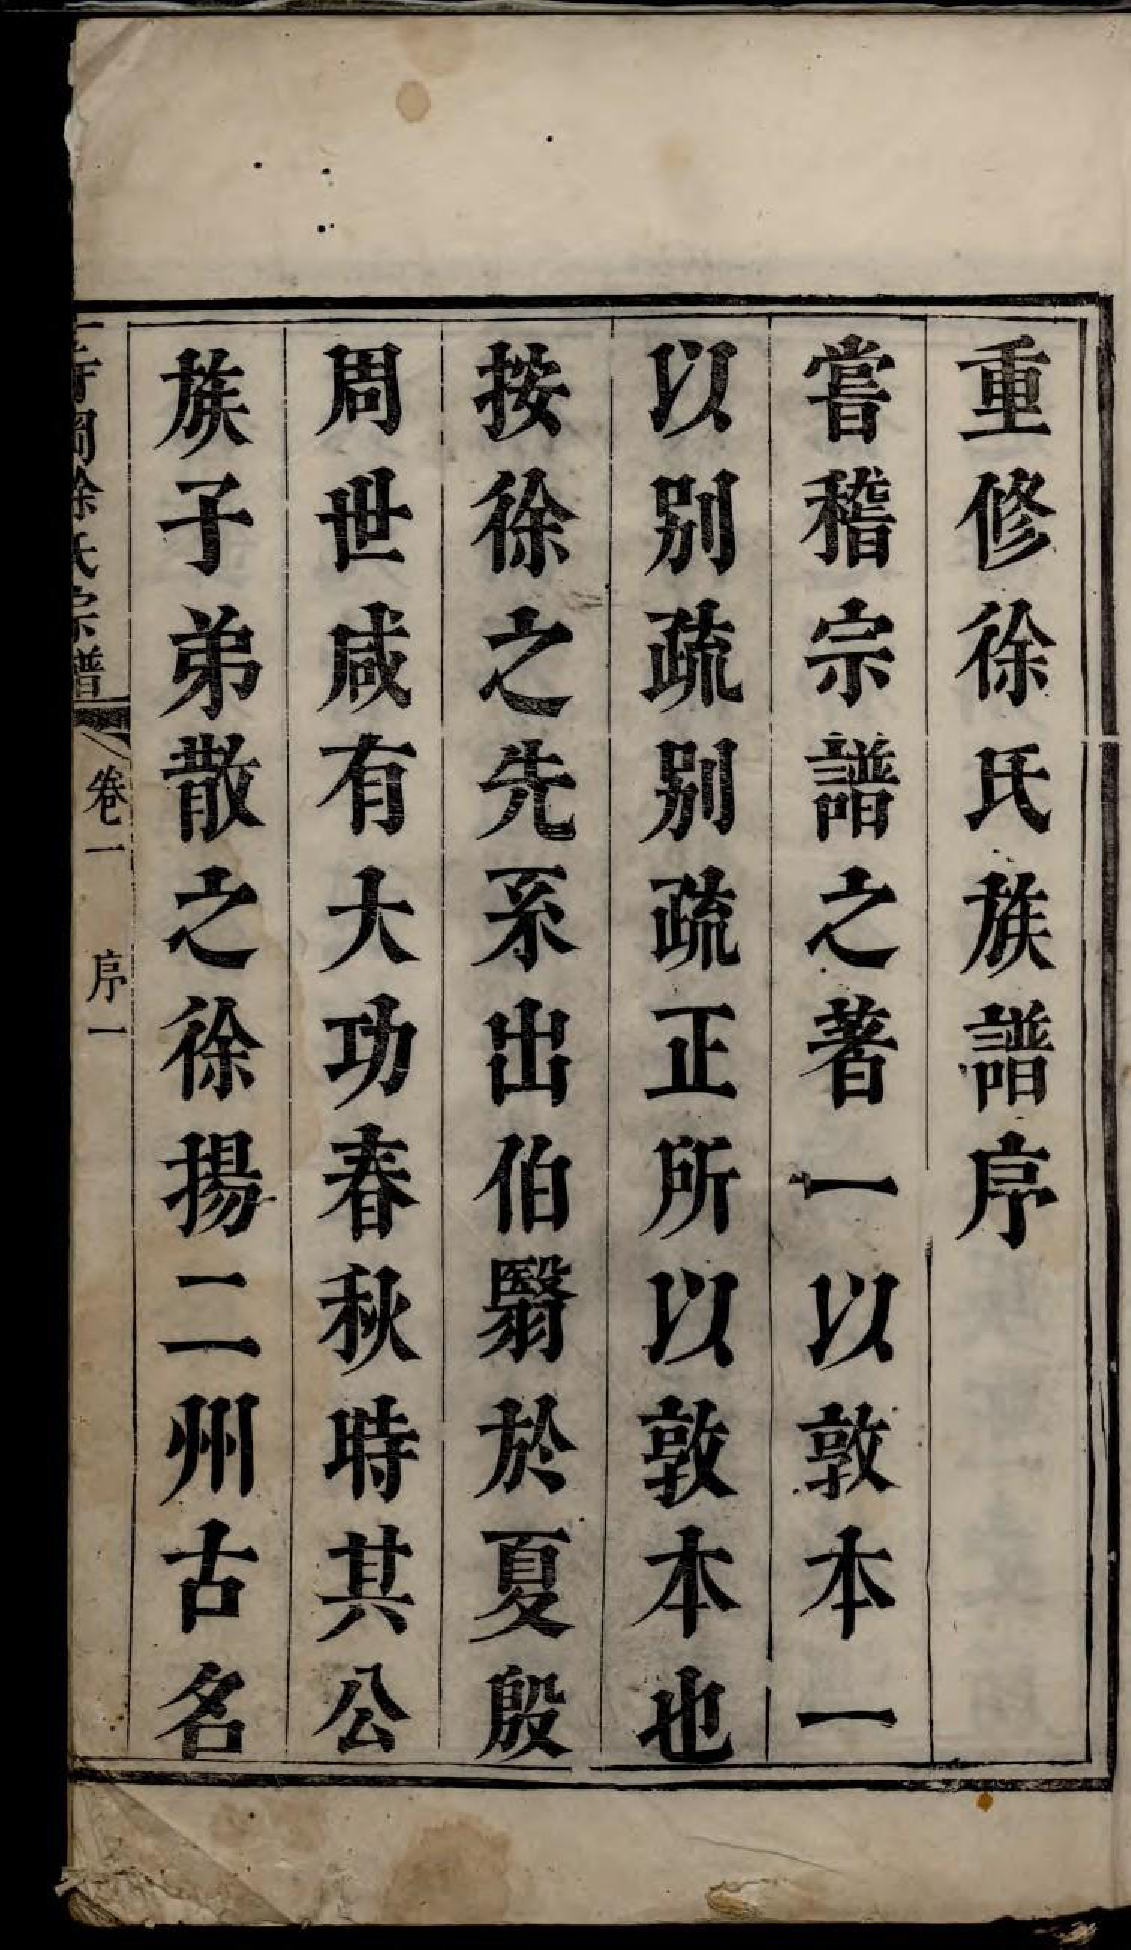 重修徐氏族譜序
嘗稽宗譜之著一以敦本一
以别疏别疏正所以敦本也
按徐之先系出伯翳於夏殷
周世咸有大功春秋時其公
族子弟散之徐揚二州古名
徐氏宗譜
卷一
序一